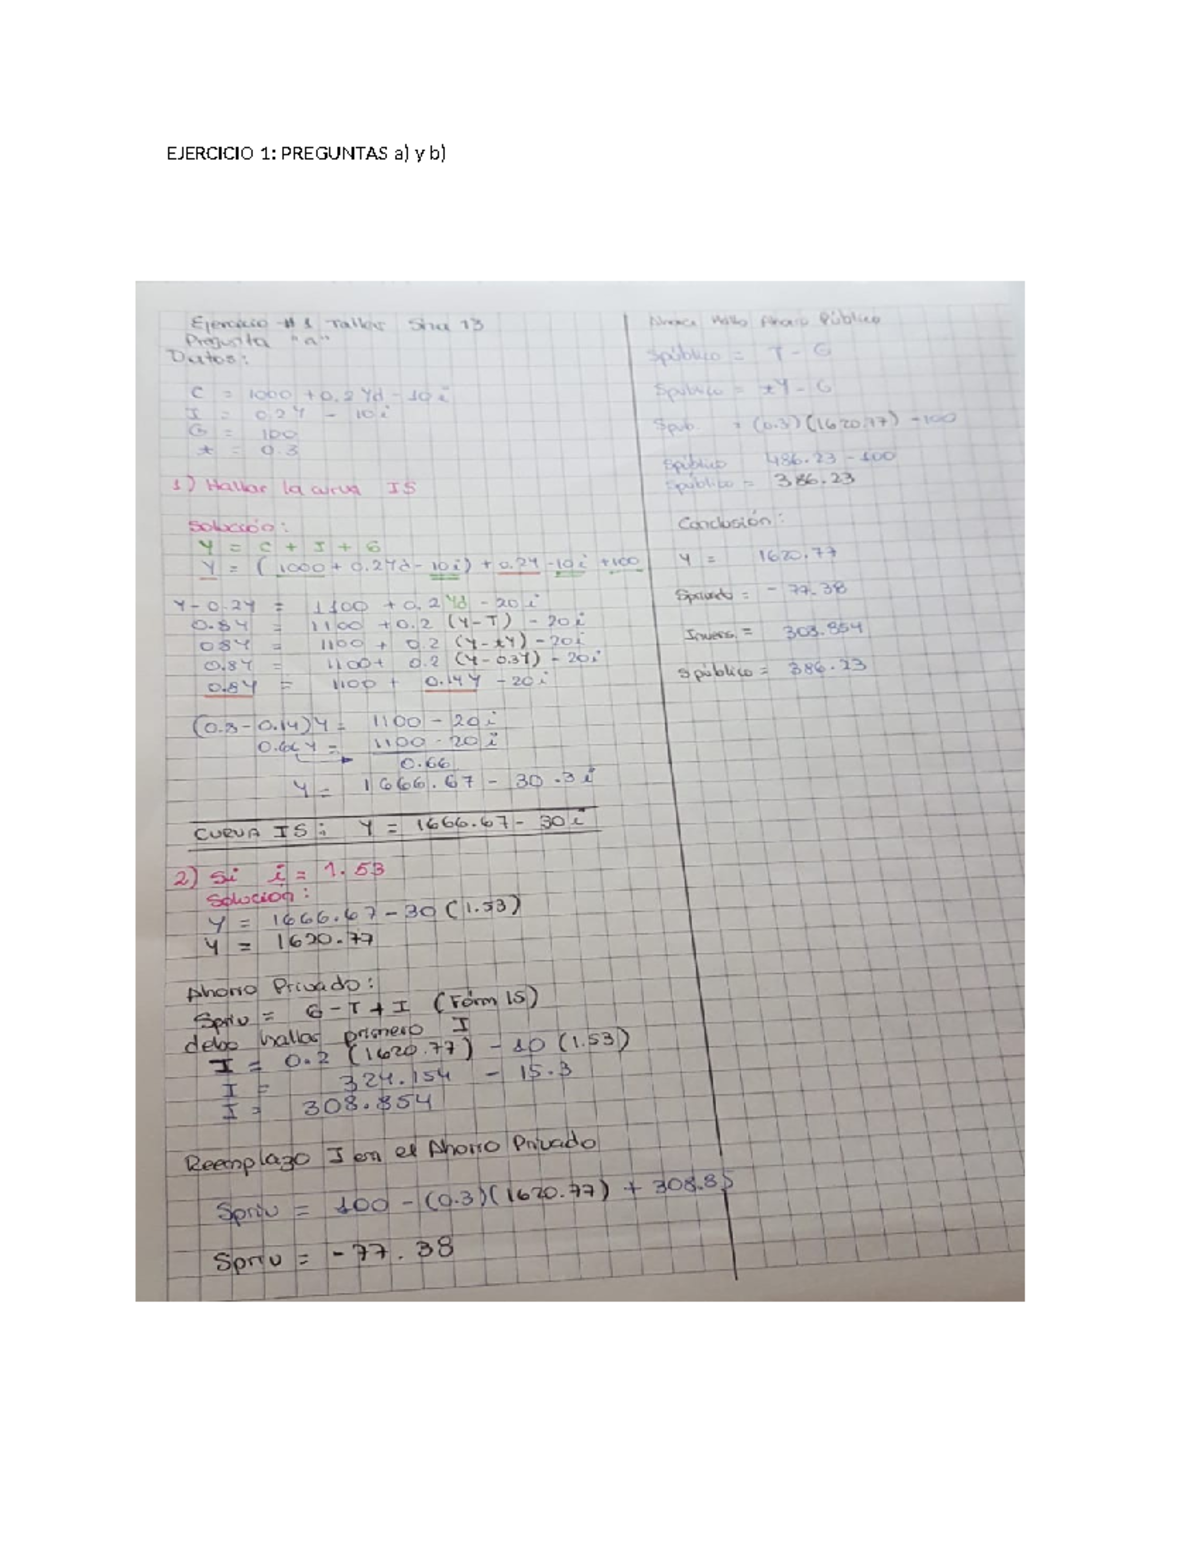 EJERCICIO 1: PREGUNTAS a) y b)
Ejercicio #1 Taller 13
Pregunta "a"
Datos:
C = 1000 + 0.2Yd - 10i
I = 0.2Y - 10i
G = 100
t = 0.3
1) Hallar la curva IS
Solución:
Y = C + I + G
Y = (1000 + 0.2Yd - 10i) + 0.2Y - 10i + 100
Y - 0.2Y = 1100 + 0.2Yd - 20i
0.8Y = 1100 + 0.2 (Y - T) - 20i
0.8Y = 1100 + 0.2 (Y - tY) - 20i
0.8Y = 1100 + 0.2 (Y - 0.3Y) - 20i
0.8Y = 1100 + 0.14Y - 20i
(0.8 - 0.14)Y = 1100 - 20i
0.66Y = 1100 - 20i
0.66
Y = 1666.67 - 30.3i
CURVA IS: Y = 1666.67 - 30i
2) Si i = 1.53
Solución:
Y = 1666.67 - 30 (1.53)
Y = 1620.77
Ahorro Privado:
Spriv = G - T + I (Form IS)
debo hallar primero I
I = 0.2 (1620.77) - 10 (1.53)
I = 324.154 - 15.3
I = 308.854
Reemplazo I en el Ahorro Privado
Spriv = 100 - (0.3)(1620.77) + 308.85
Spriv = -77.38
Ahora Hallo Ahorro Público
Spúblico = T - G
Spublico = tY - G
Spub. = (0.3)(1620.77) - 100
Spúblico 486.23 - 100
Spúblico = 386.23
Conclusión:
Y = 1620.77
Sprivado = - 77.38
Invers = 303.854
Spúblico = 386.23